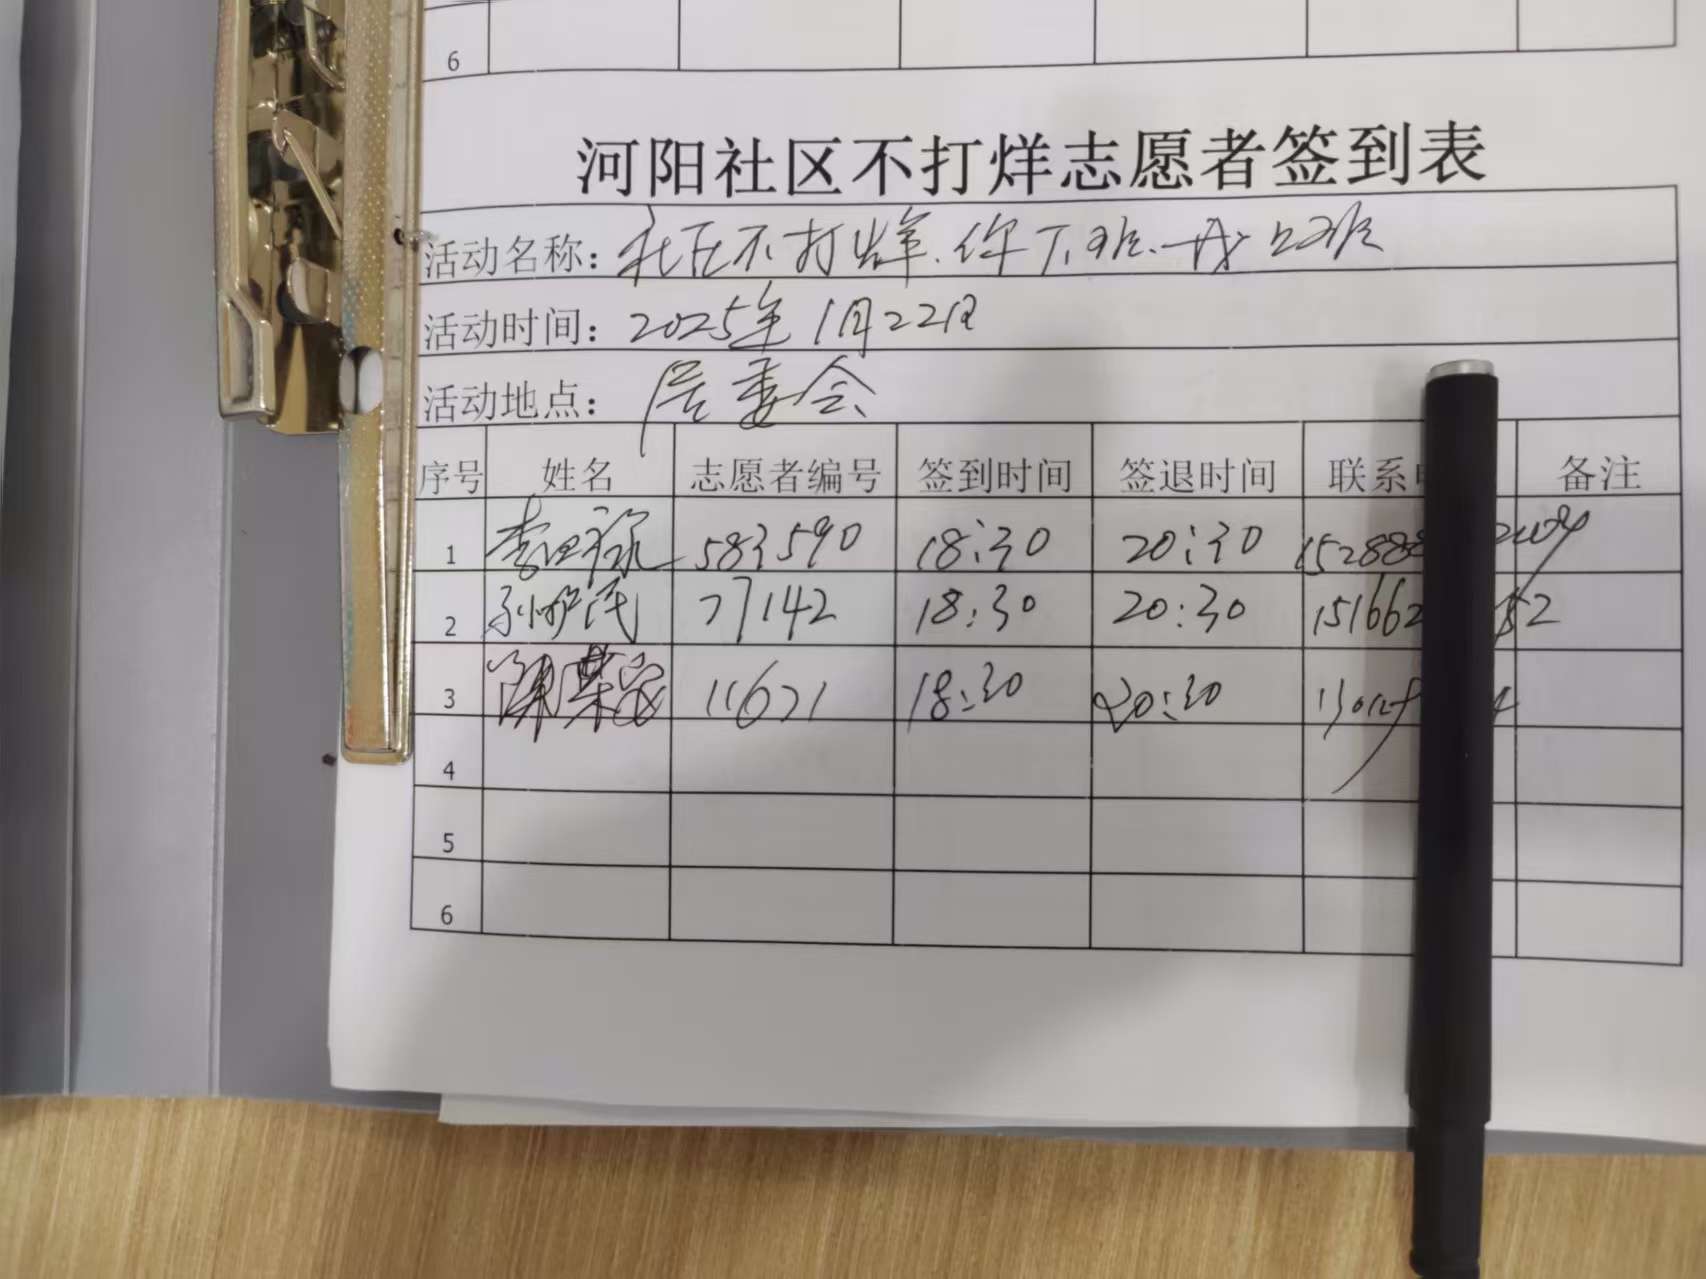 6
河阳社区不打烊志愿者签到表
活动名称：社区不打烊.你下班.我上班
活动时间：2025年1月22日
活动地点：居委会
序号 姓名 志愿者编号 签到时间 签退时间 联系 备注
1 583590 18:30 20:30 15288
2 77142 18:30 20:30 151662 52
3 陈荣家 11671 18:30 20:30
4
5
6